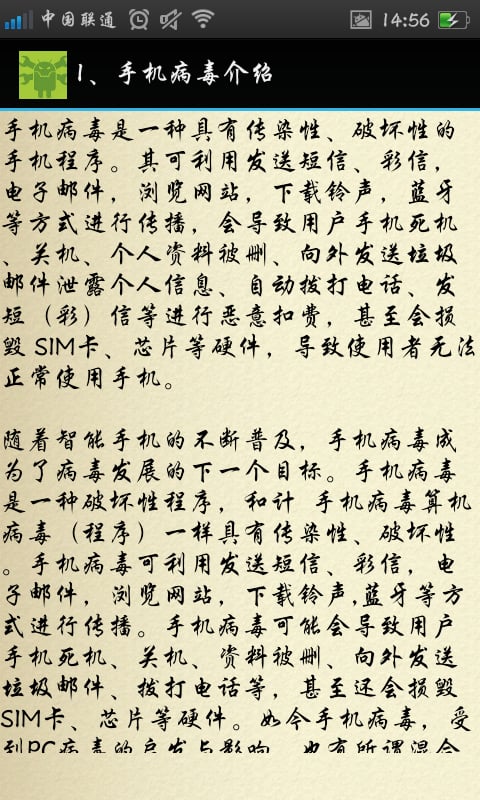 中国联通 14:56
1、手机病毒介绍
手机病毒是一种具有传染性、破坏性的
手机程序。其可利用发送短信、彩信，
电子邮件，浏览网站，下载铃声，蓝牙
等方式进行传播，会导致用户手机死机
、关机、个人资料被删、向外发送垃圾
邮件泄露个人信息、自动拨打电话、发
短（彩）信等进行恶意扣费，甚至会损
毁 SIM卡、芯片等硬件，导致使用者无法
正常使用手机。
随着智能手机的不断普及，手机病毒成
为了病毒发展的下一个目标。手机病毒
是一种破坏性程序，和计 手机病毒算机
病毒（程序）一样具有传染性、破坏性
。手机病毒可利用发送短信、彩信，电
子邮件，浏览网站，下载铃声,蓝牙等方
式进行传播。手机病毒可能会导致用户
手机死机、关机、资料被删、向外发送
垃圾邮件、拨打电话等，甚至还会损毁
SIM卡、芯片等硬件。如今手机病毒，受
到PC病毒的启发与影响，也有所谓混合